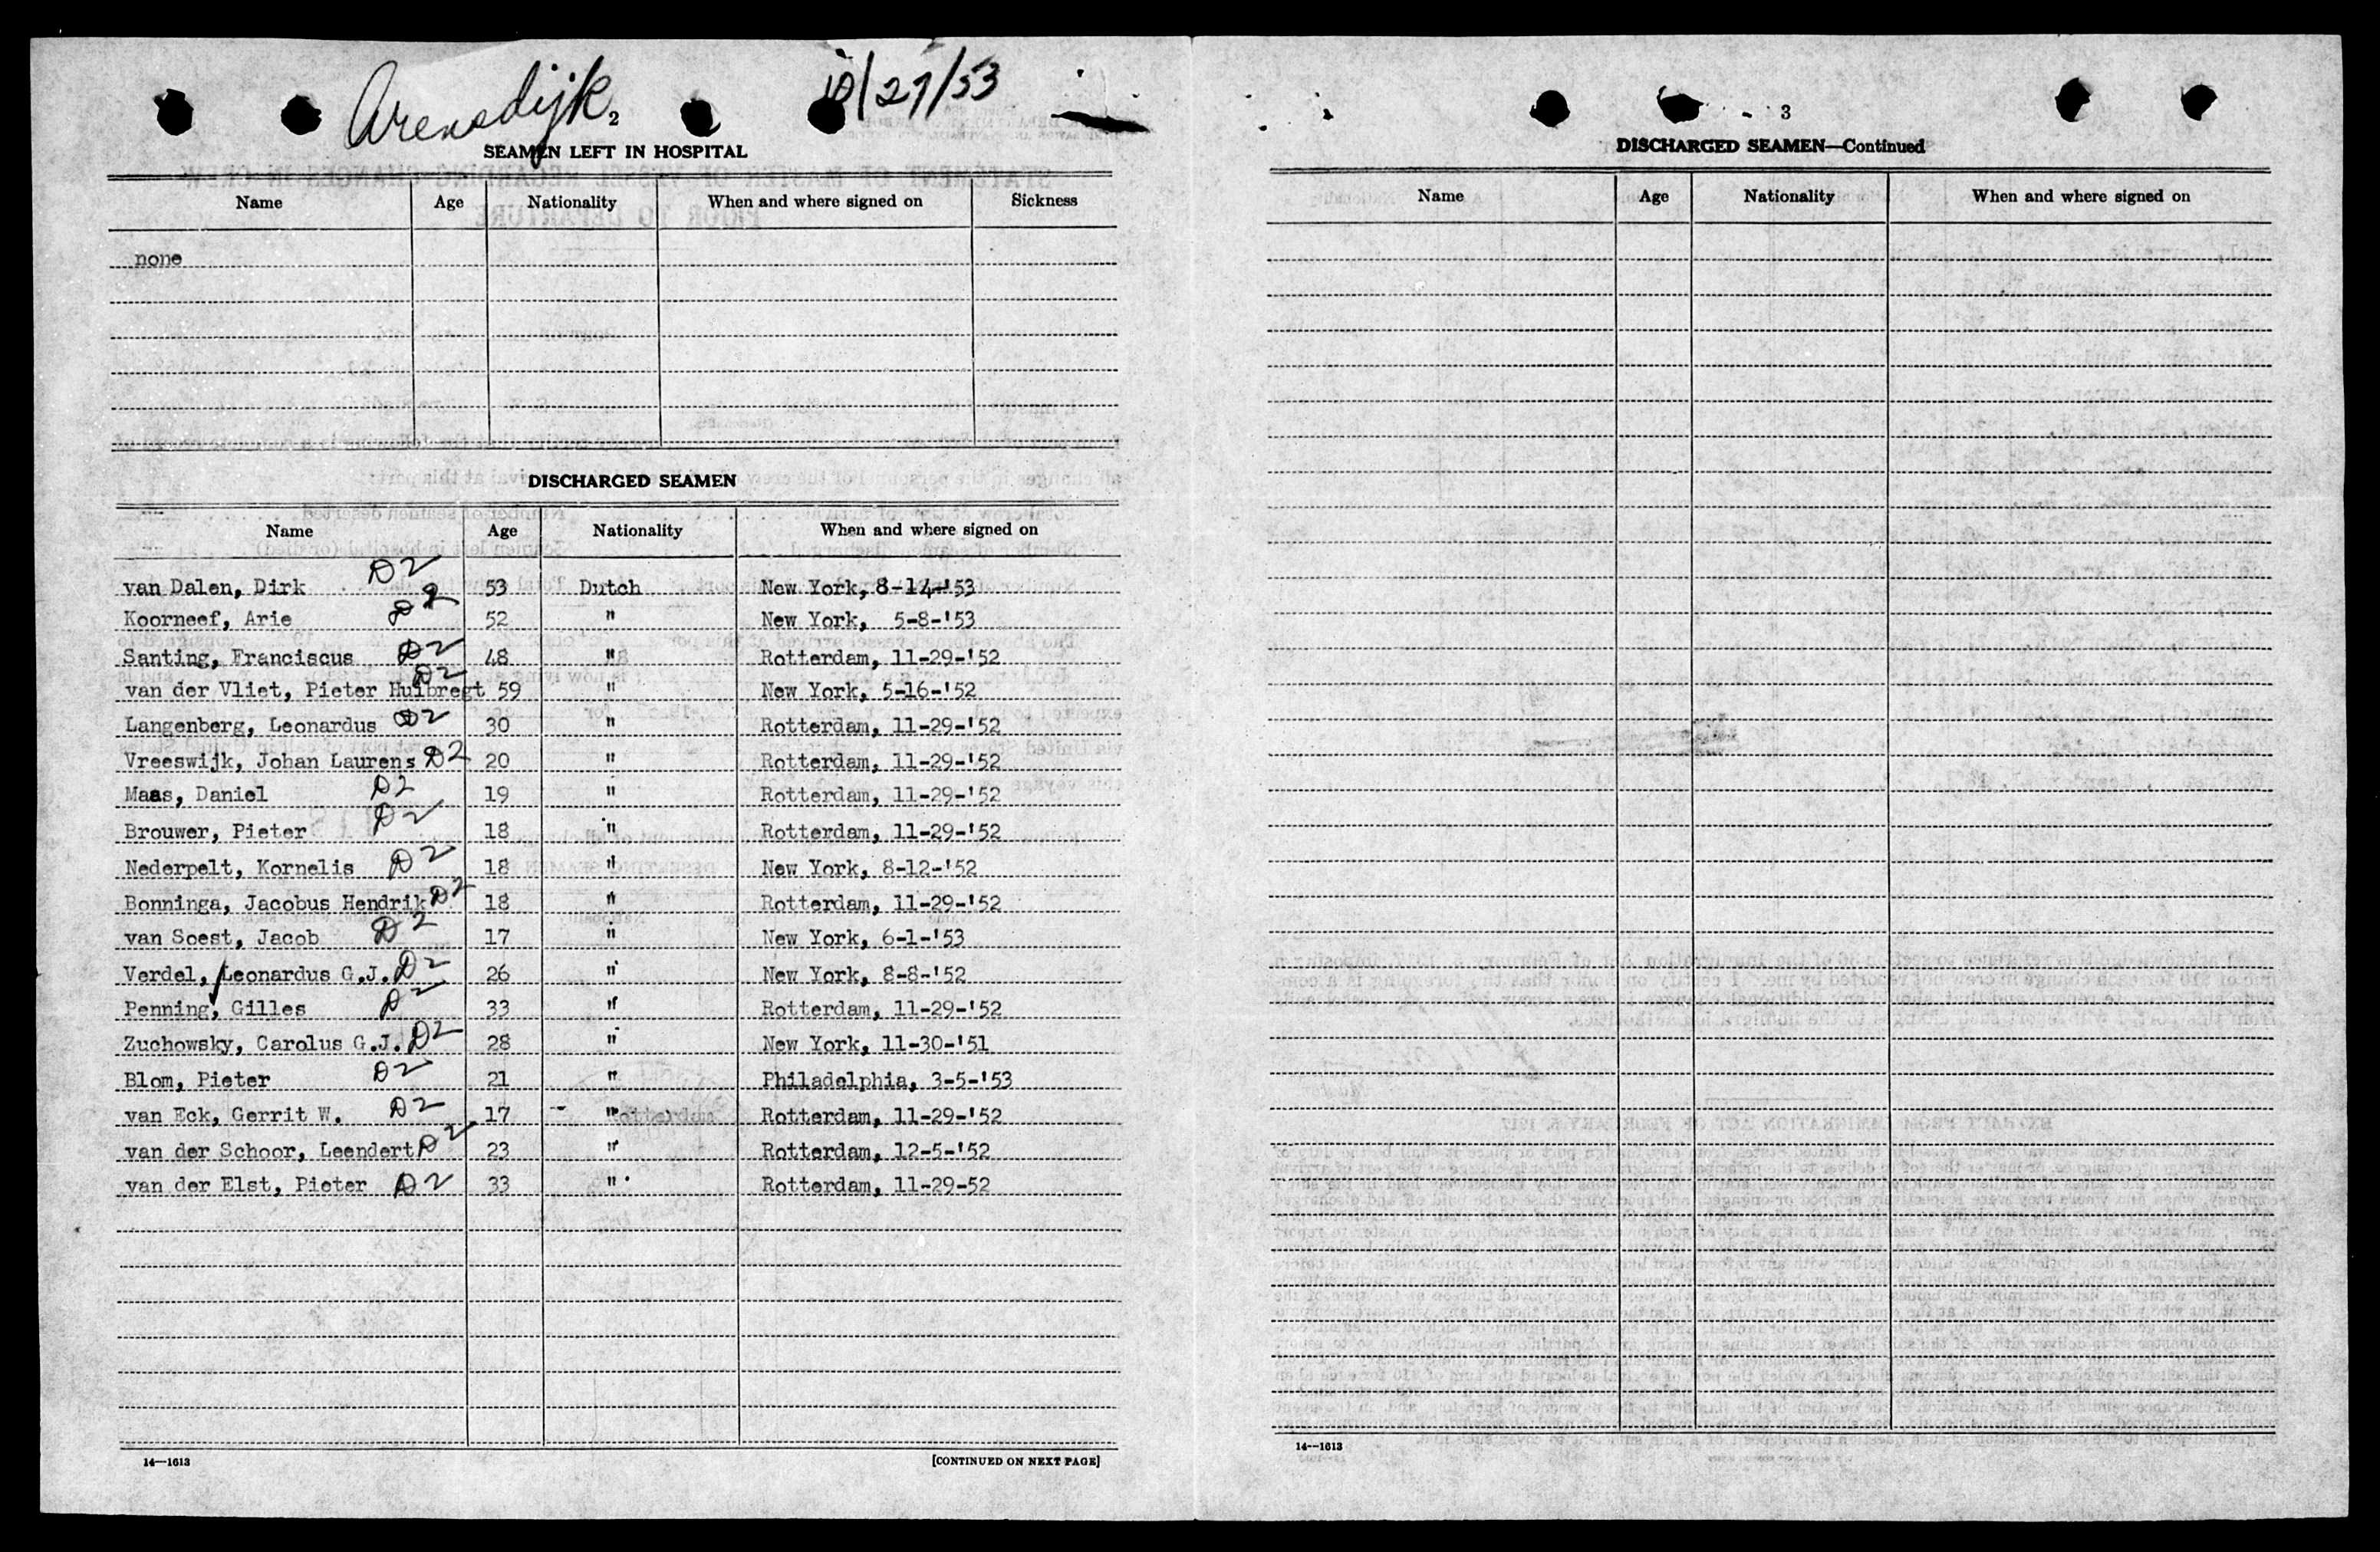 Arensdijk 10/27/53
2
SEAMEN LEFT IN HOSPITAL
Name Age Nationality When and where signed on Sickness
none
DISCHARGED SEAMEN
Name Age Nationality When and where signed on
van Dalen, Dirk D2 53 Dutch New York, 8-14-'53
Koorneef, Arie D2 52 " New York, 5-8-'53
Santing, Franciscus D2 48 " Rotterdam, 11-29-'52
van der Vliet, Pieter Huibregt D2 59 " New York, 5-16-'52
Langenberg, Leonardus D2 30 " Rotterdam, 11-29-'52
Vreeswijk, Johan Laurens D2 20 " Rotterdam, 11-29-'52
Maas, Daniel D2 19 " Rotterdam, 11-29-'52
Brouwer, Pieter D2 18 " Rotterdam, 11-29-'52
Nederpelt, Kornelis D2 18 " New York, 8-12-'52
Bonninga, Jacobus Hendrik D2 18 " Rotterdam, 11-29-'52
van Soest, Jacob D2 17 " New York, 6-1-'53
Verdel, Leonardus G.J. D2 26 " New York, 8-8-'52
Penning, Gilles D2 33 " Rotterdam, 11-29-'52
Zuchowsky, Carolus G.J. D2 28 " New York, 11-30-'51
Blom, Pieter D2 21 " Philadelphia, 3-5-'53
van Eck, Gerrit W. D2 17 - " Rotterdam, 11-29-'52
van der Schoor, Leendert D2 23 " Rotterdam, 12-5-'52
van der Elst, Pieter D2 33 " Rotterdam, 11-29-52
14—1613 [CONTINUED ON NEXT PAGE]
3
DISCHARGED SEAMEN—Continued
Name Age Nationality When and where signed on
14—1613